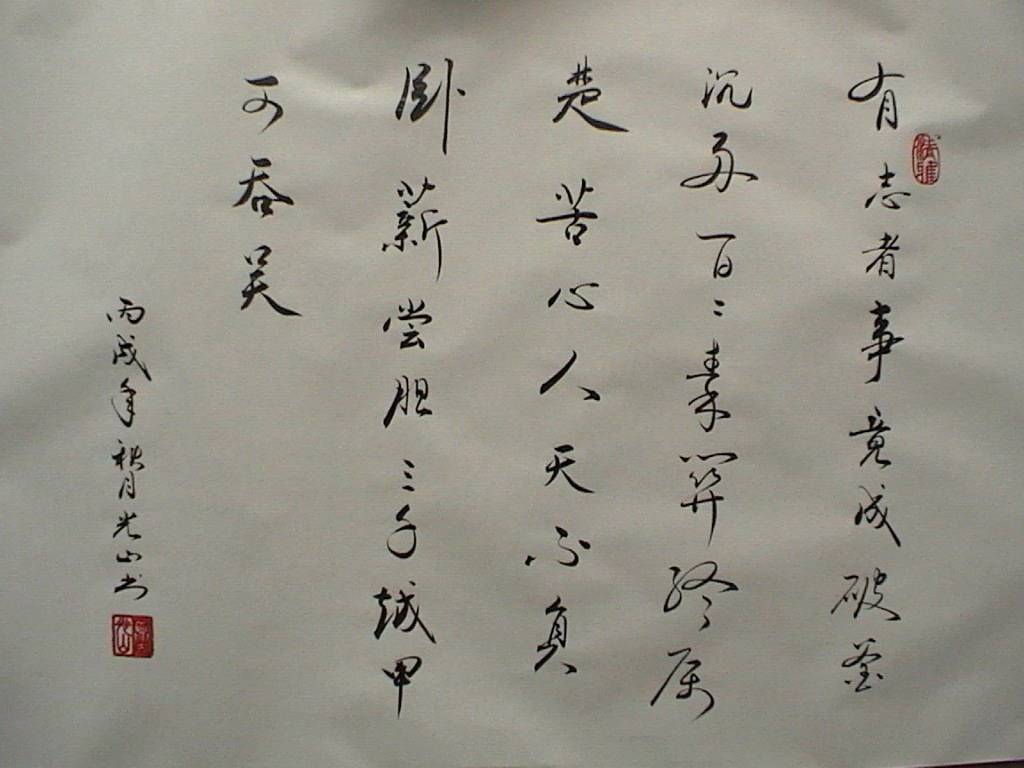 有志者事竟成破釜
沉舟百二秦關终属
楚苦心人天不負
卧薪尝胆三千越甲
可吞吴
丙戌年秋月光山书